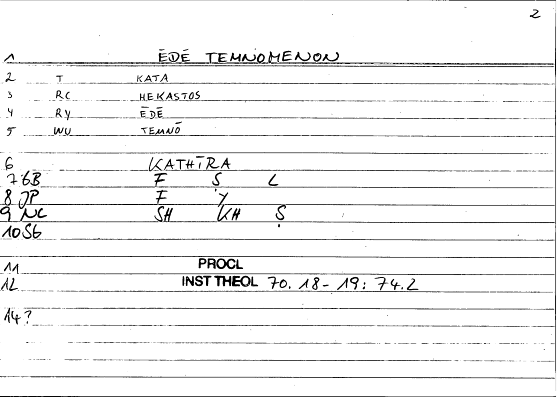 2
1 ĒDĒ TEMNOMENON
2 T KATA
3 RC HEKASTOS
4 RY ĒDĒ
5 WU TEMNŌ
6 KATHĪRA
7 GB F Ṣ L
8 JP F Y
9 NC SH KH Ṣ
10 SG
11 PROCL
12 INST THEOL 70. 18 - 19: 74.2
14?